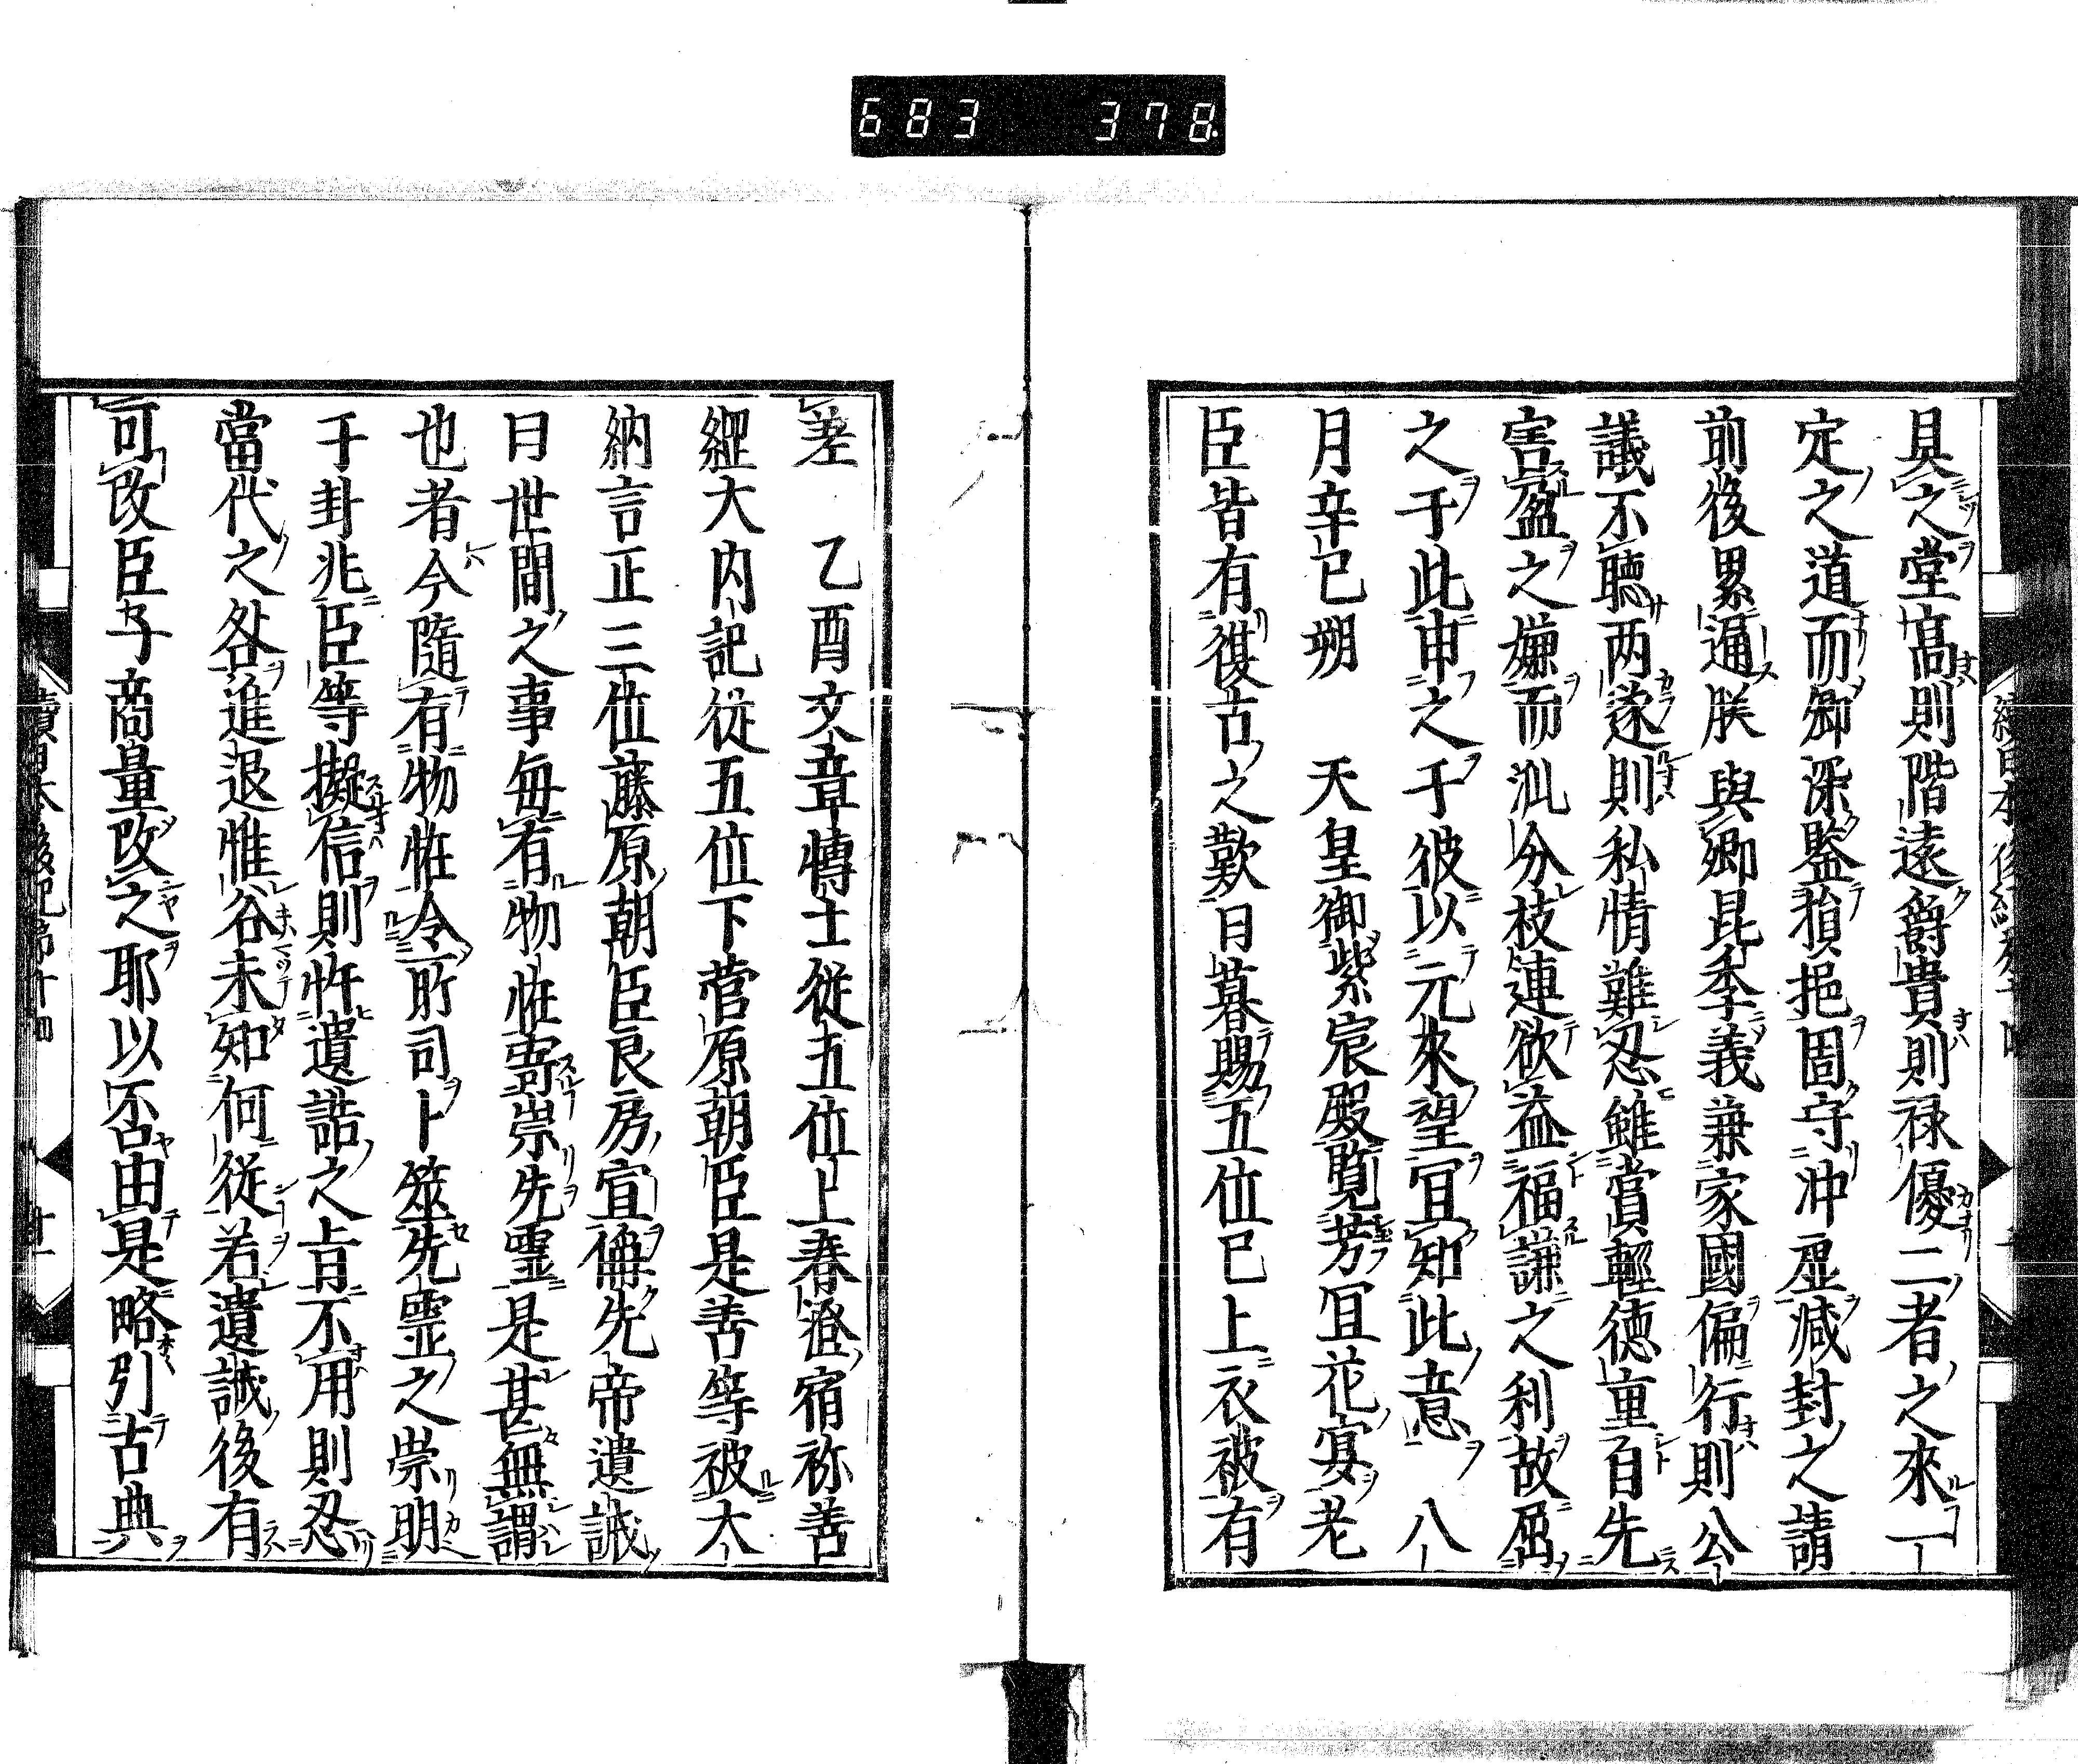 683 378
具之堂高則階遠爵貴則禄優二者之來一
定之道而卿深鑒損挹固守沖虚減封之請
前後累逼朕與卿昆季義兼家國偏行則公
議不聴両遂則私情難忍雖賞輕徳重自先
害盈之嫌而泒分枝連欲益福謙之利故屈
之于此申之于彼以元來望冝知此意 八
月辛巳朔 天皇御紫宸殿覧芳冝花宴老
臣皆有復古之歎日暮賜五位已上衣被有
差 乙酉文章博士從五位上春澄宿祢善
繩大内記從五位下菅原朝臣是善等被大
納言正三位藤原朝臣良房宣偁先帝遺誡
曰世間之事毎有物恠寄祟先霊是甚無謂
也者今隨有物恠令所司卜筮先霊之祟明
于卦兆臣等擬信則忤遺誥之旨不用則忍
當代之咎進退惟谷未知何從若遺誡後有
可改臣子商量改之耶以否由是略引古典
續日本後紀第十四 十一